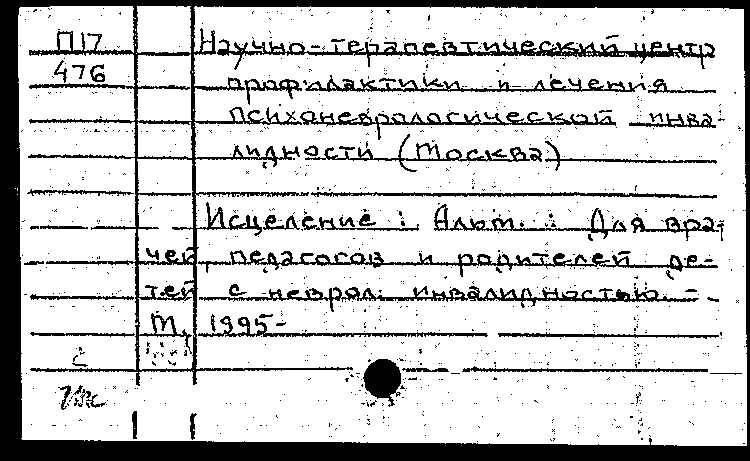 П17 Научно-терапевтический центр
476 профилактики и лечения
психоневрологической инва-
лидности (Москва)
Исцеление : Альм. : Для вра-
чей, педагогов и родителей де-
тей с неврол. инвалидностью. -
М., 1995-